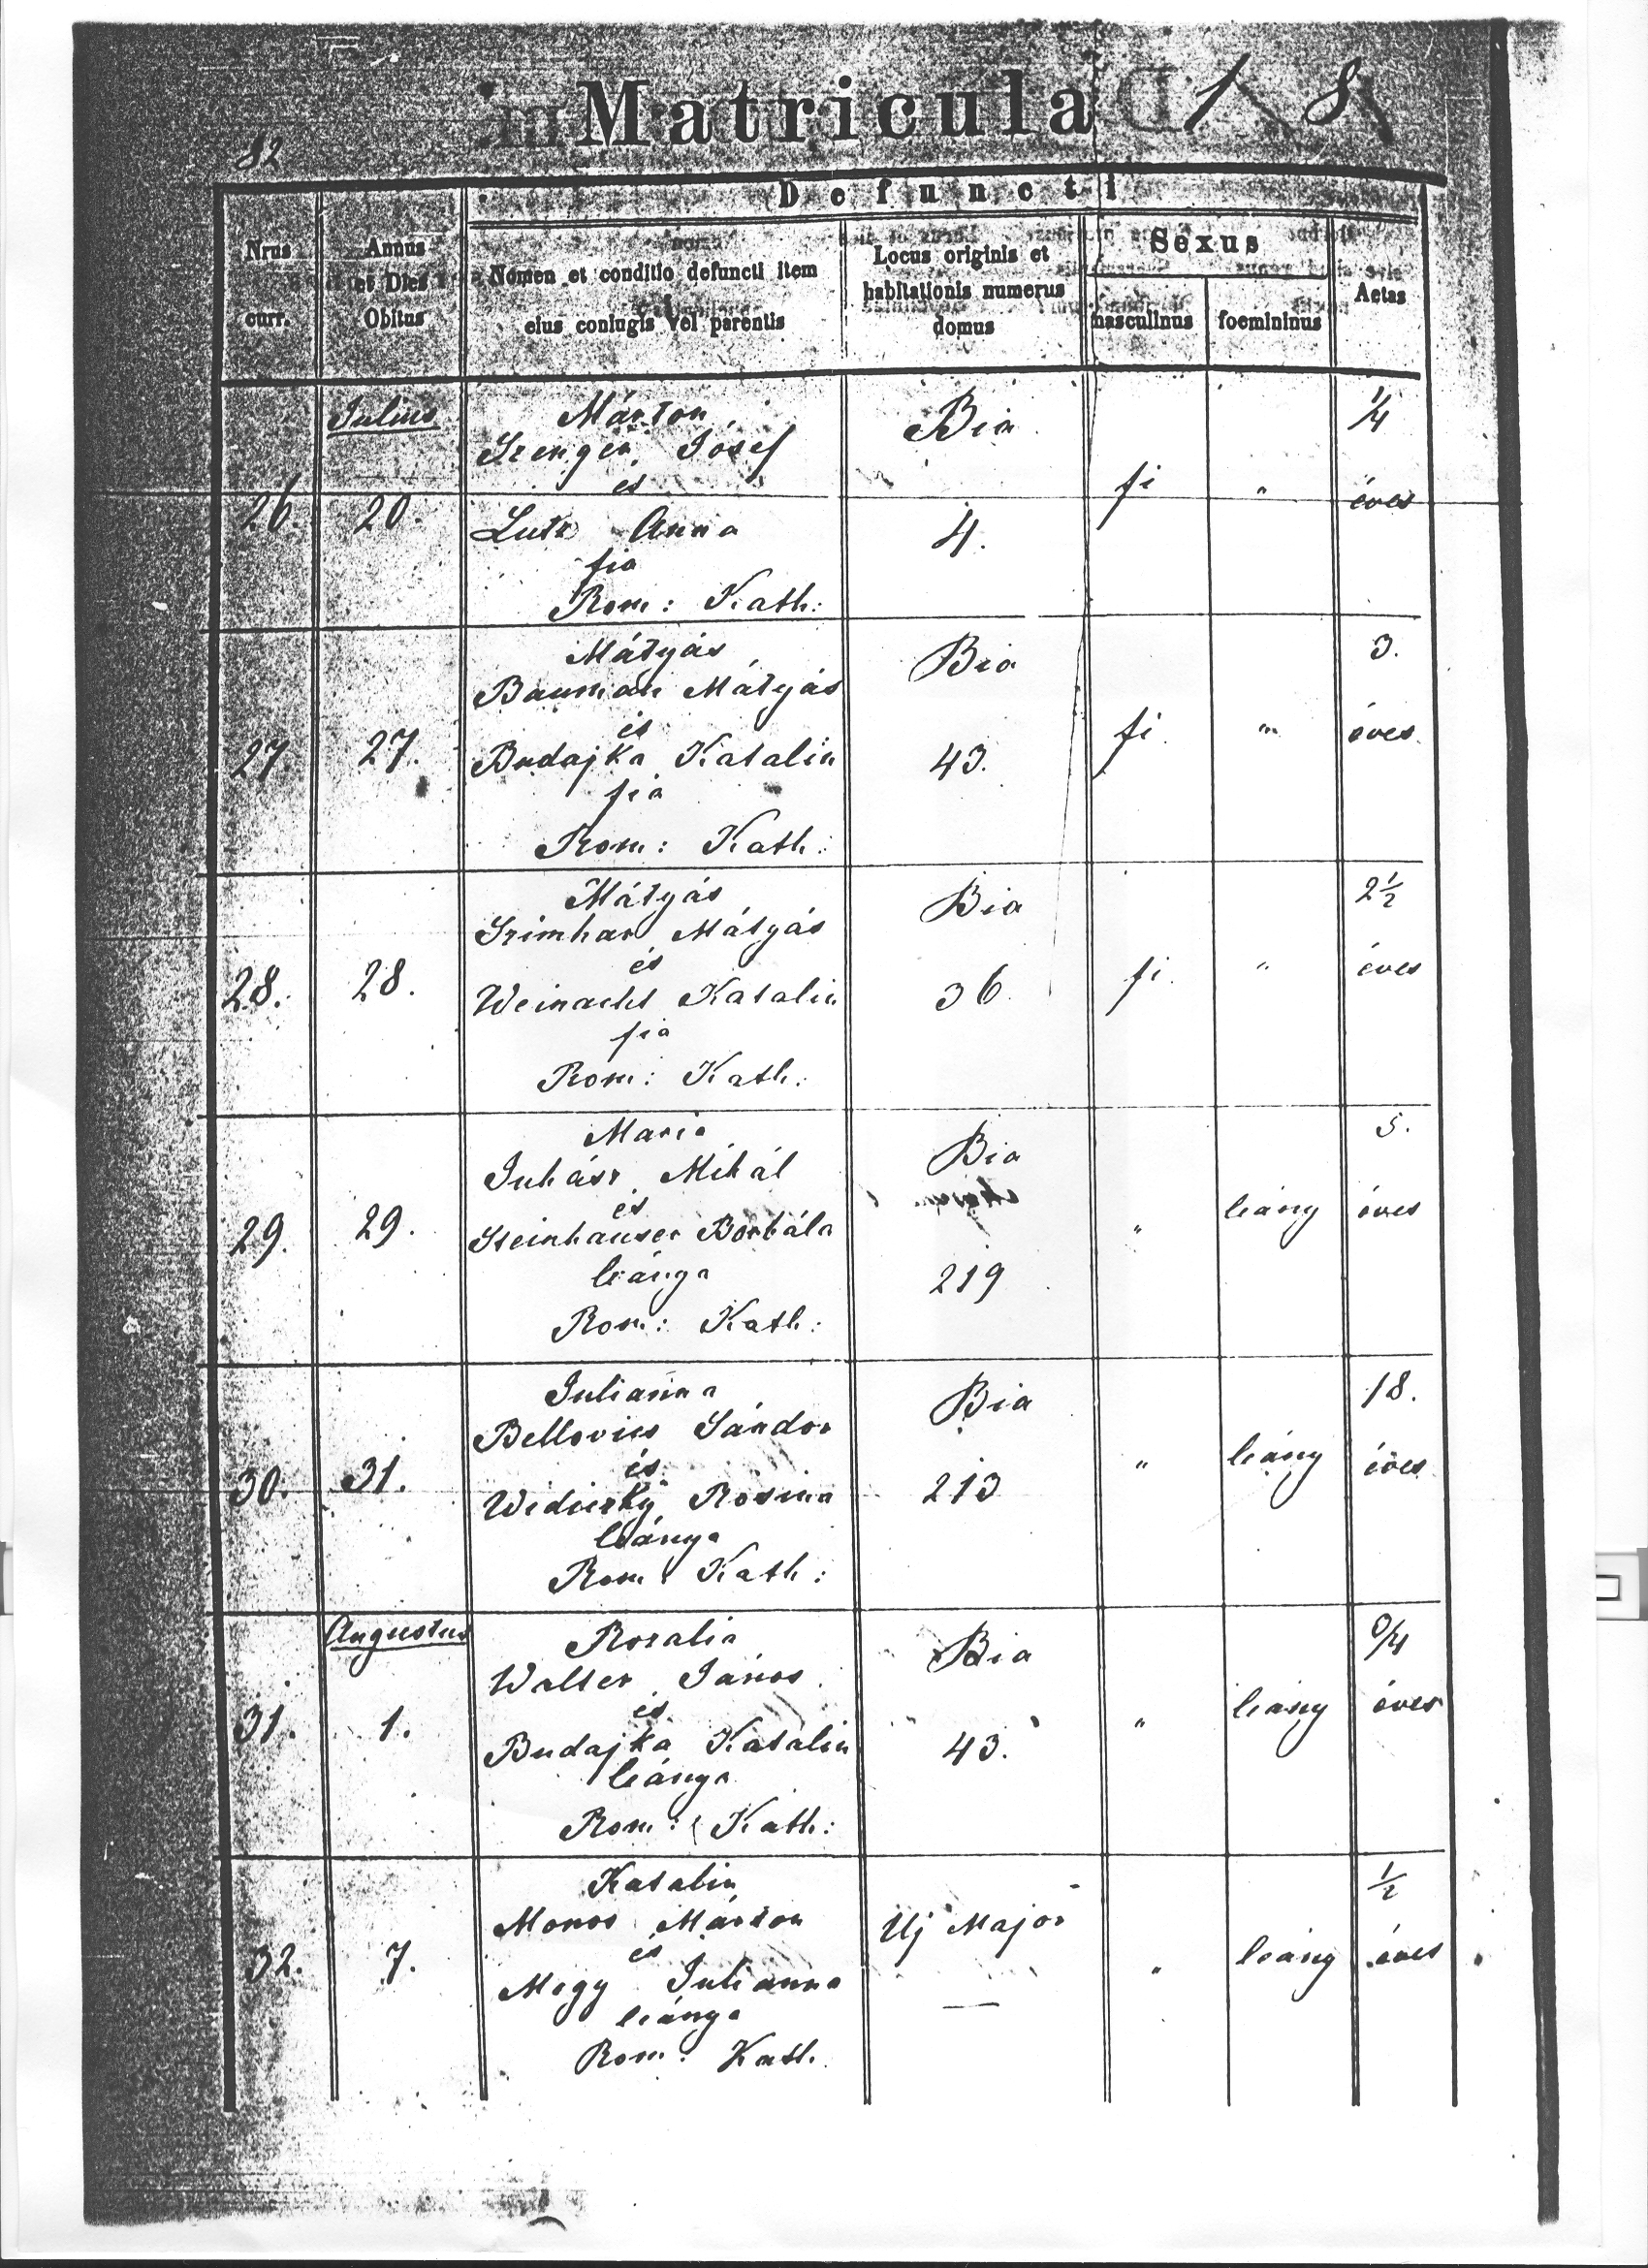 Matricula 18
82
Defuncti
Nrus curr.
Annus et Dies Obitus
Nomen et conditio defuncti item eius coniugis vel parentis
Locus originis et habitationis numerus domus
Sexus
masculinus
foemininus
Aetas
Julius
Márton
Szenger Jósef
és
Lutz Anna
fia
Rom: Kath:
26. 20.
Bia
4.
fi "
1/4
éves
Mátyás
Bauman Mátyás
és
Budajka Katalin
fia
Rom: Kath:
27 27.
Bia
43.
fi "
3.
éves
Mátyás
Szimhar Mátyás
és
Weinacht Katalin
fia
Rom: Kath:
28. 28.
Bia
36
fi. "
2 1/2
éves
Maria
Juhász Mihál
és
Steinhauser Borbála
leánya
Rom: Kath:
29. 29.
Bia
219
" leány
5.
éves
Julianna
Bellovics Sándor
és
Rosina
leánya
Rom: Kath:
30. 31.
Bia
213
" leány
18.
éves
Augustus
Rozalia
Walter János
és
Budajka Katalin
leánya
Rom: Kath:
31. 1.
Bia
43.
" leány
3/4
éves
Katalin
Monos Márton
és
Megy Julianna
leánya
Rom: Kath.
32. 7.
Uj Major
—
" leány
1/2
éves